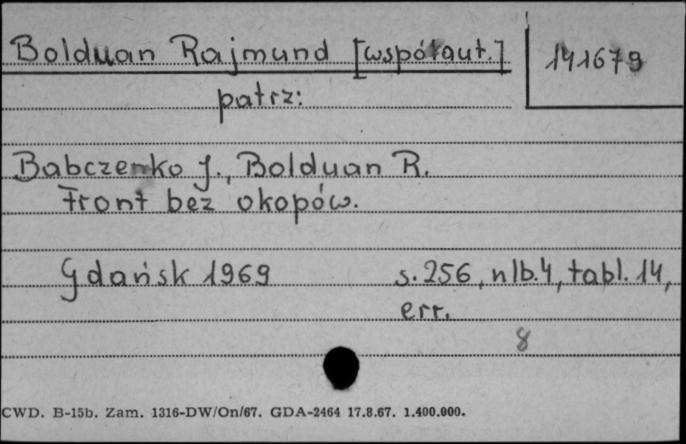 Bolduan Rajmund [współaut.]
141679
patrz:
Babczenko J., Bolduan R.
Front bez okopów.
Gdańsk 1969 s. 256, nlb. 4, tabl. 14,
err.
8
CWD. B-15b. Zam. 1316-DW/On/67. GDA-2464 17.8.67. 1.400.000.